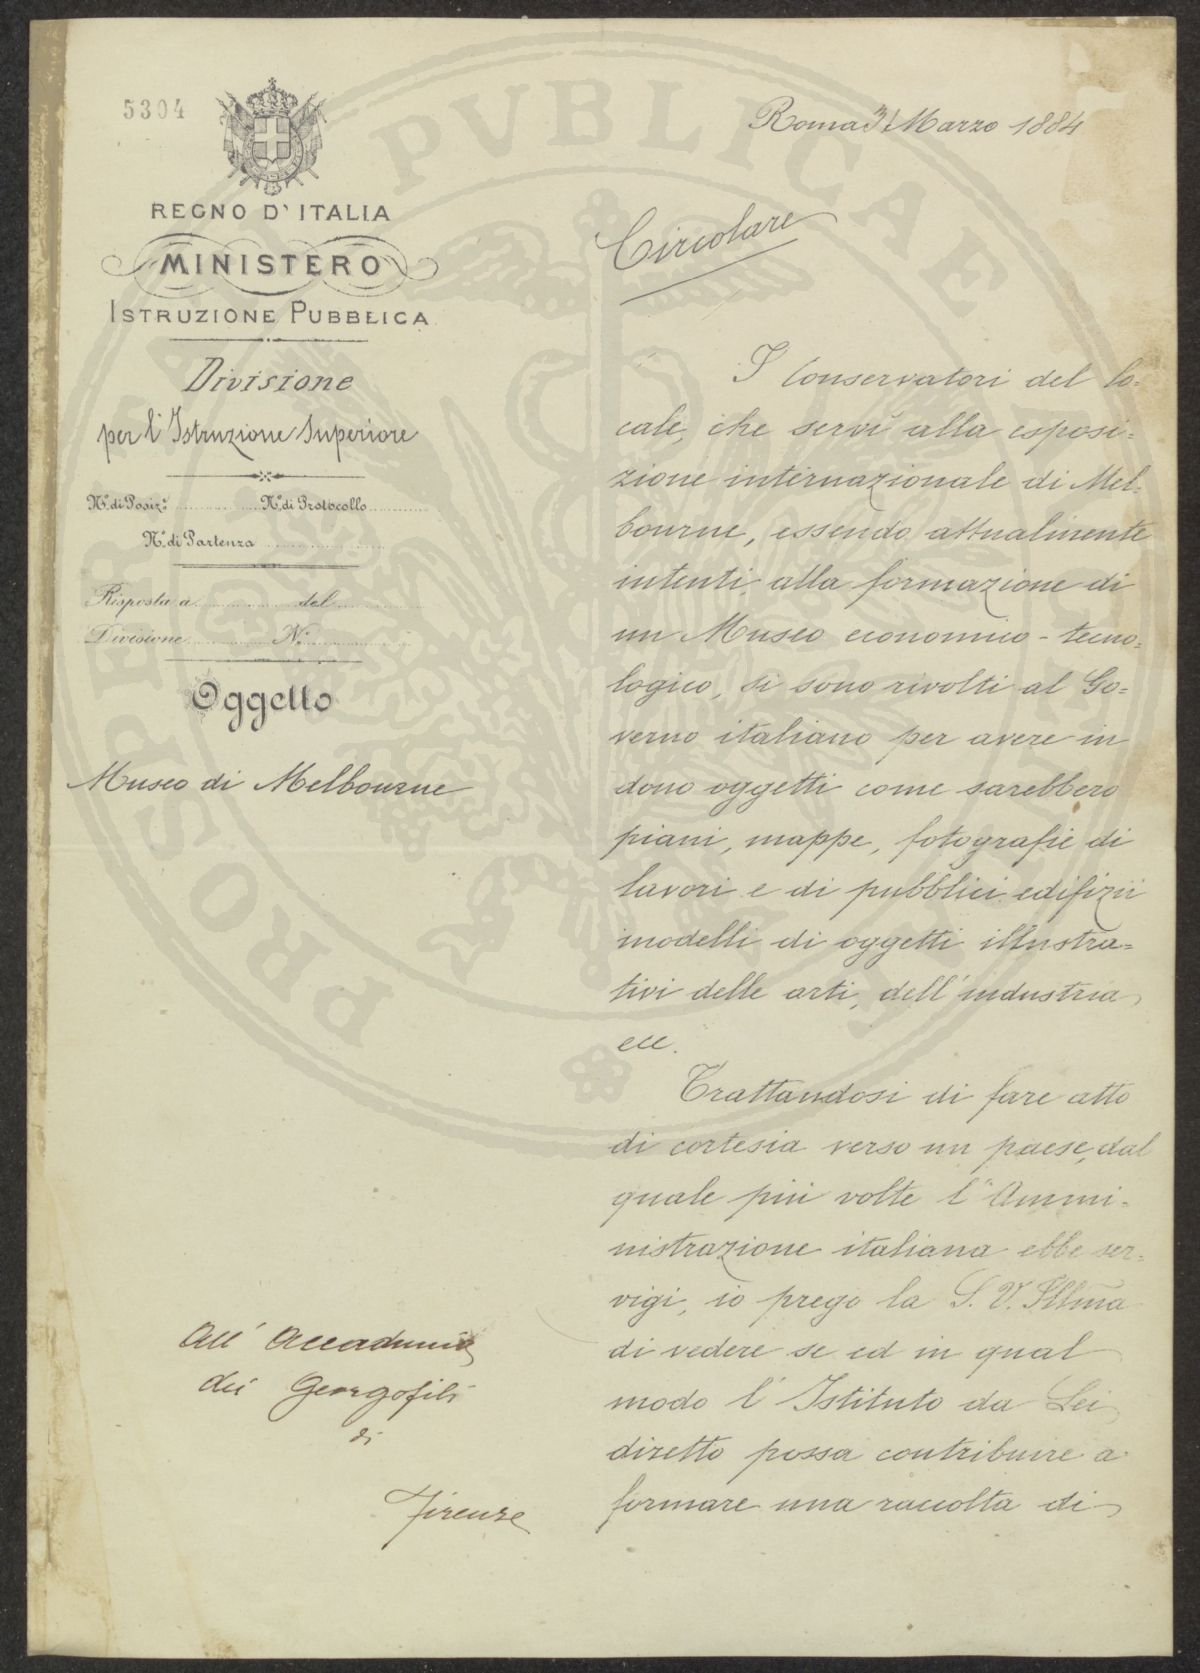 5304
REGNO D'ITALIA
MINISTERO
ISTRUZIONE PUBBLICA
Divisione
per l'Istruzione Superiore
N.º di Posiz.º N.º di Protocollo
N.º di Partenza
Risposta a del
Divisione N.º
Oggetto
Museo di Melbourne
All' Accademia
dei Georgofili
di
Firenze
Roma 31 Marzo 1884
Circolare
I Conservatori del lo=
cale, che servì alla esposi=
zione internazionale di Mel=
bourne, essendo attualmente
intenti alla formazione di
un Museo economico-tecno=
logico, si sono rivolti al Go=
verno italiano per avere in
dono oggetti come sarebbero
piani, mappe, fotografie di
lavori e di pubblici edifizii
modelli di oggetti illustra=
tivi delle arti, dell'industria,
ecc.
Trattandosi di fare atto
di cortesia verso un paese, dal
quale più volte l'Ammi=
nistrazione italiana ebbe ser=
vigi, io prego la S. V. Illma
di vedere se ed in qual
modo l'Istituto da Lei
diretto possa contribuire a
formare una raccolta di
PROSPERITATI PVBLICAE